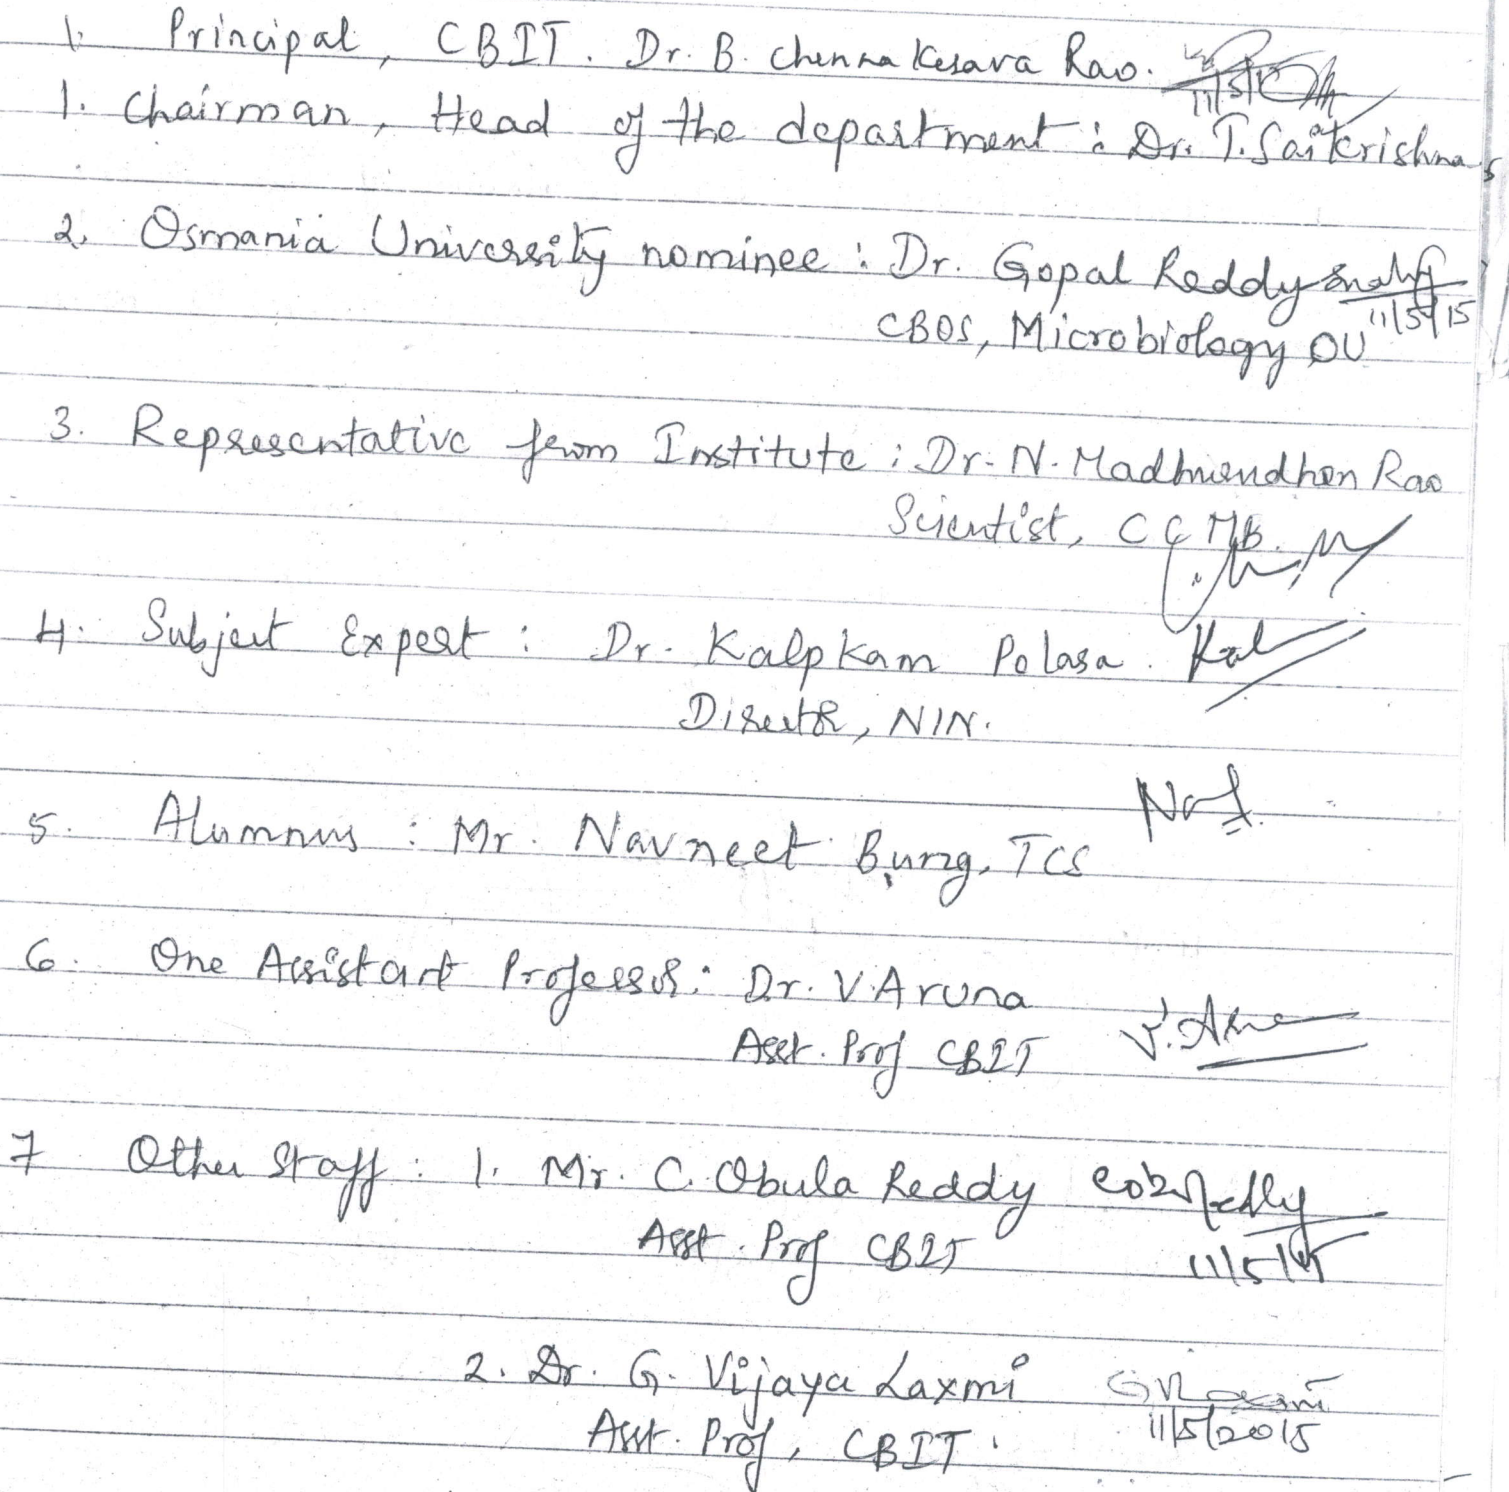 1. Principal, CBIT. Dr. B. Chenna Kesava Rao.
11/5/15
1. Chairman, Head of the department : Dr. T. Saikrishna
2. Osmania University nominee : Dr. Gopal Reddy
11/5/15
CBOS, Microbiology OU
3. Representative from Institute : Dr. N. Madhusudhan Rao
Scientist, CCMB.
4. Subject Expert : Dr. Kalpkam Polasa. Kal
Director, NIN.
5. Alumnus : Mr. Navneet Bung, TCS
6. One Assistant Professor : Dr. V. Aruna
Asst. Prof CBIT
7 Other Staff : 1. Mr. C. Obula Reddy
Asst. Prof CBIT 11/5/15
2. Dr. G. Vijaya Laxmi
Asst. Prof, CBIT. 11/5/2015